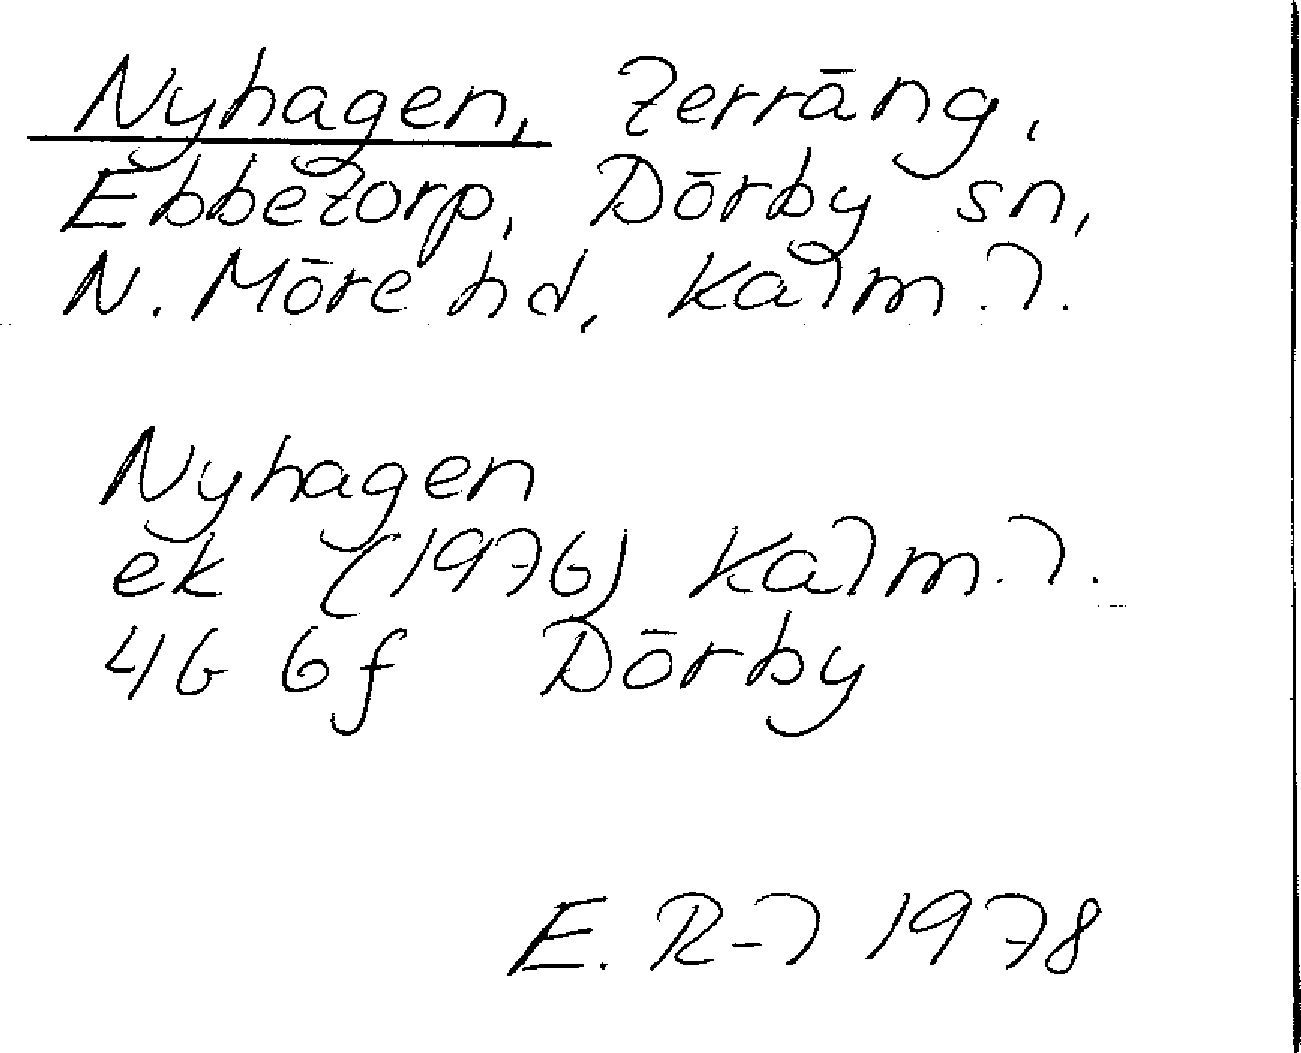 Nyhagen, terräng,
Ebbetorp, Dörby sn,
N. Möre hd, Kalm. l.
Nyhagen
ek (1976) Kalm. l.
4G 6f Dörby
E. R-l 1978